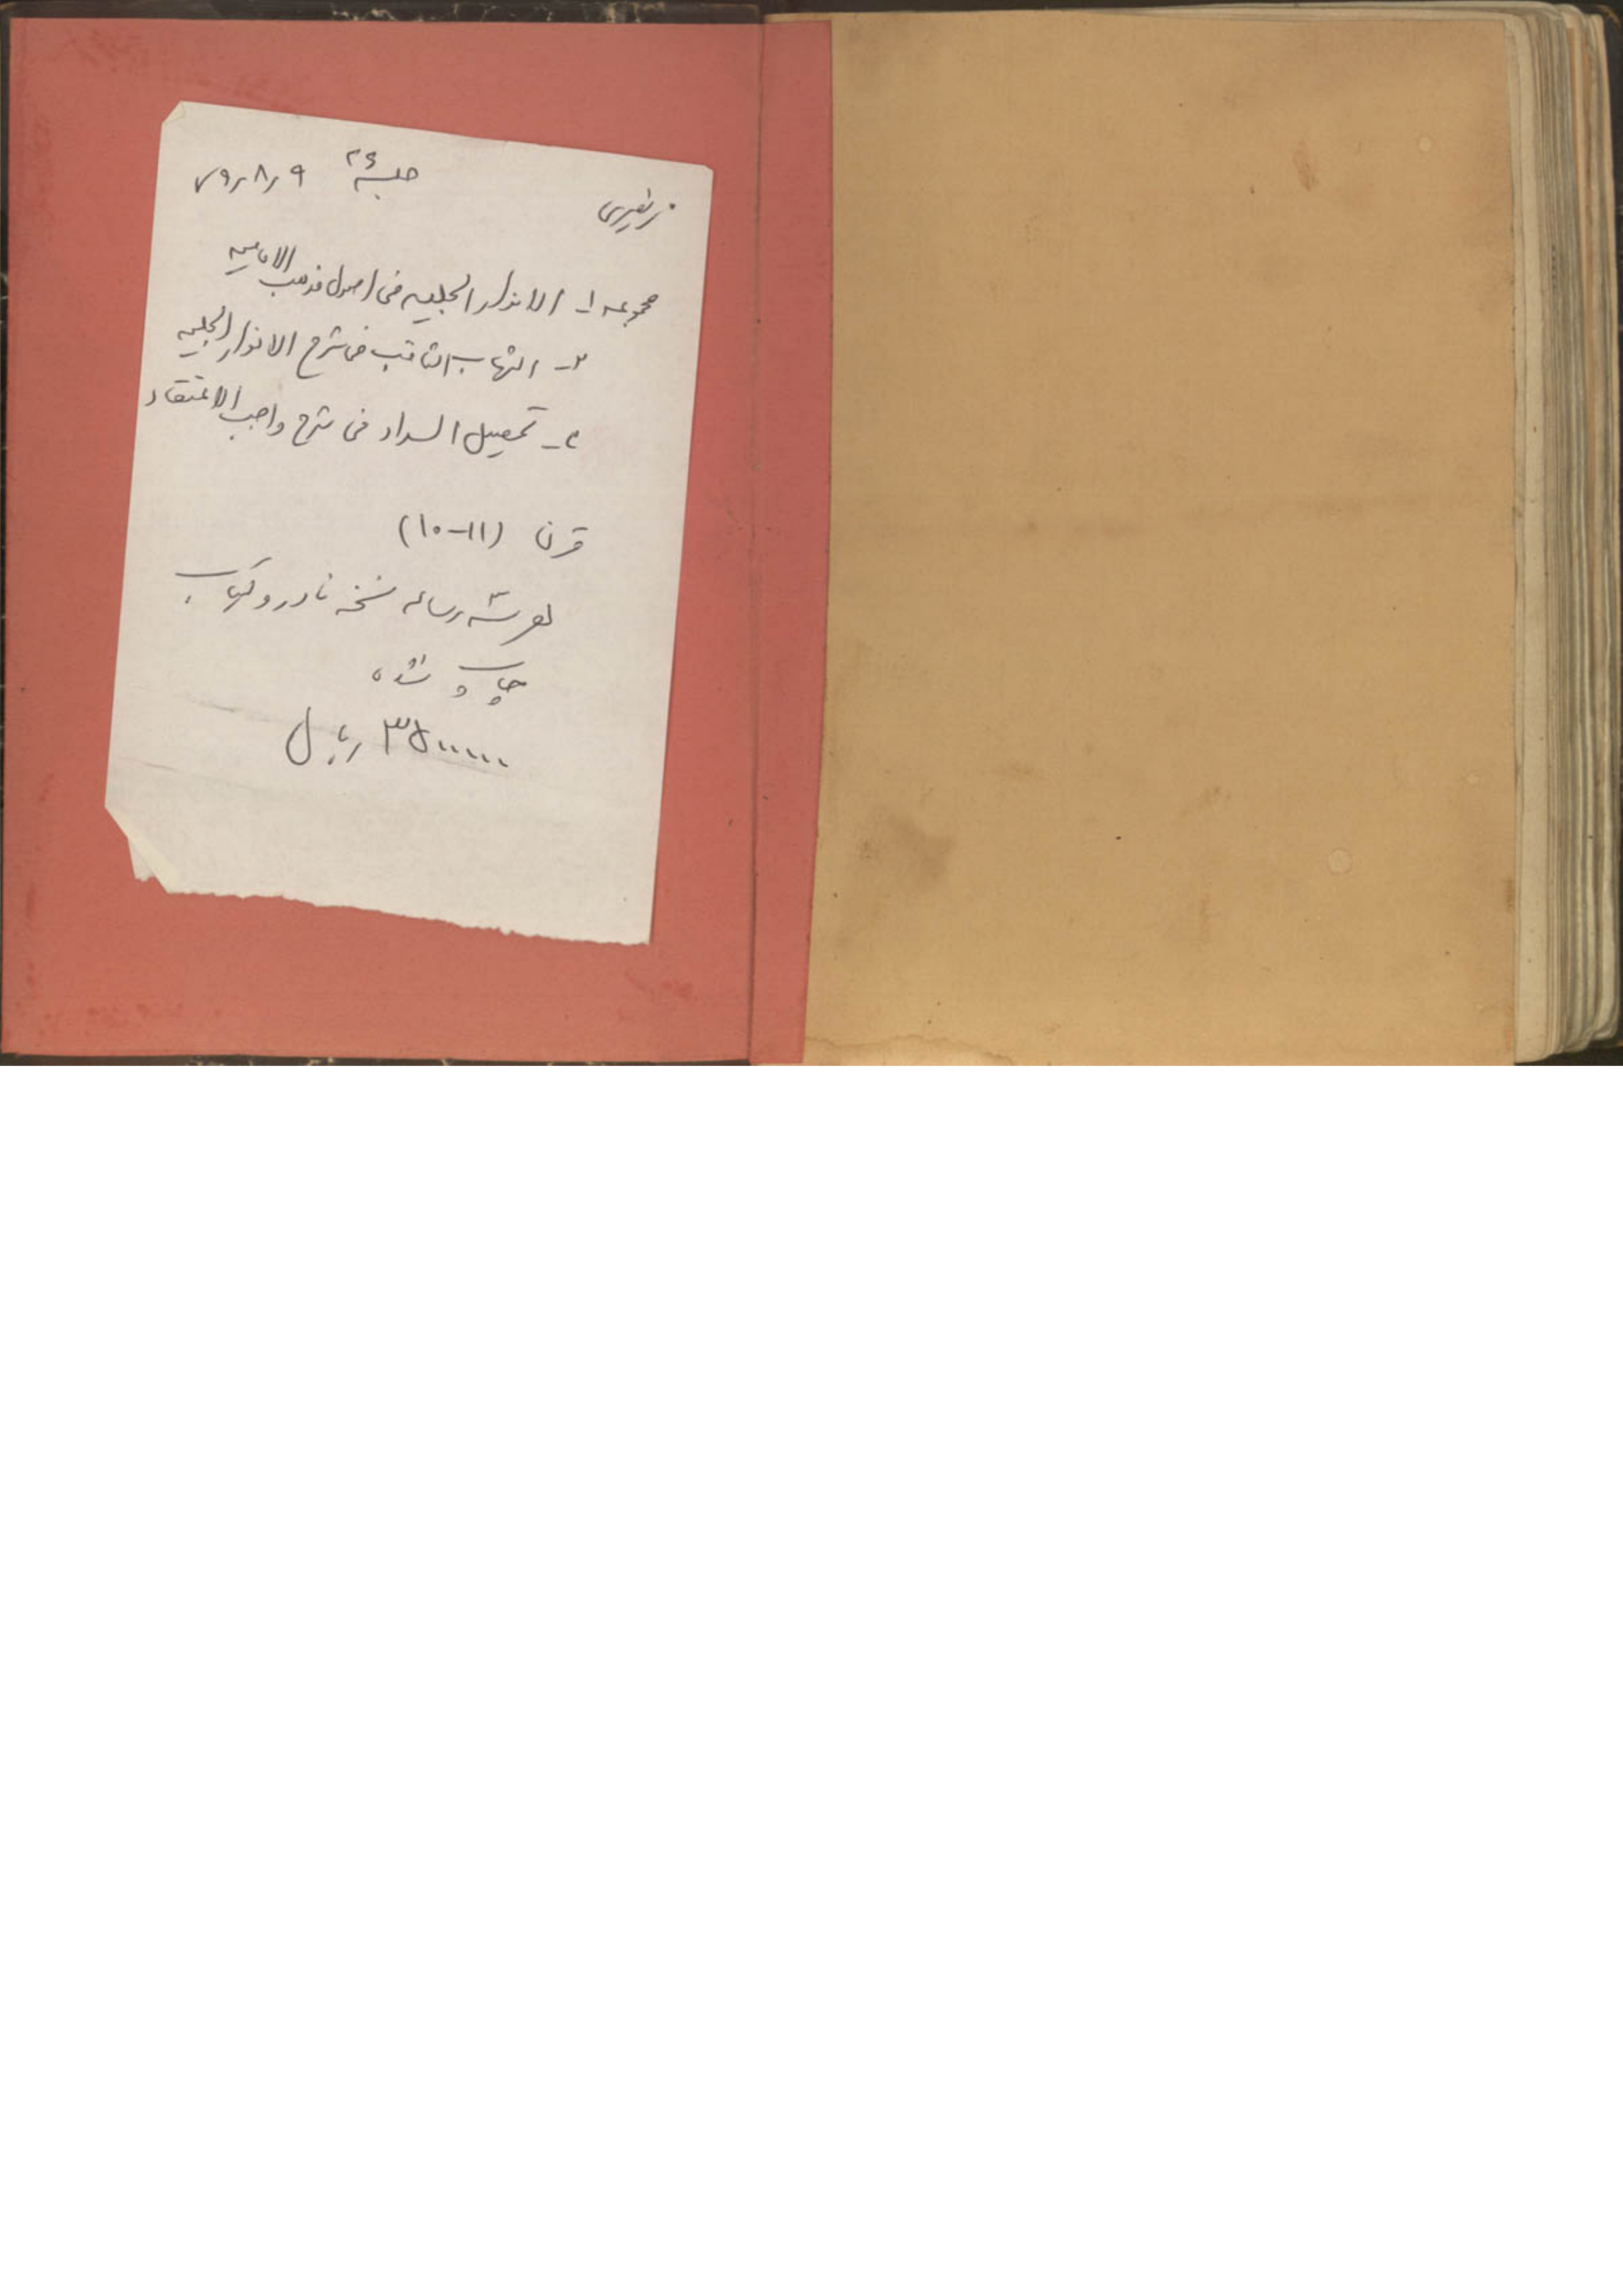 جلسه ۲۶ ۷۹٫۸٫۹
مجموعه ۱- الانوار الجلیه فی اصول مذهب الامامیه
۲- الشهاب الثاقب فی شرح الانوار الجلیه
۳- تحصیل السداد فی شرح واجب الاعتقاد
قرن (۱۱-۱۰)
هر سه رساله نسخه نادر و کمیاب
چاپ نشده
۳۵۰۰۰۰۰ ریال